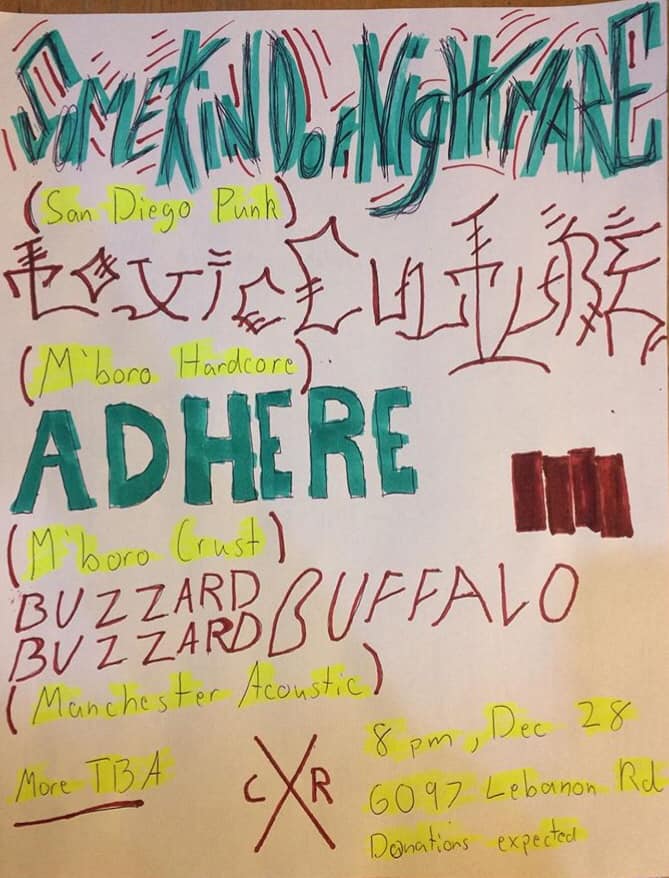 SOMEKiNDOFNigHTMARE
(San Diego Punk)
ToxicCulTuRE
(M'boro Hardcore)
ADHERE
(M'boro Crust)
BUZZARD BUFFALO
BUZZARD
(Manchester Acoustic)
More TBA
C X R
8 pm, Dec 28
6097 Lebanon Rd
Donations expected